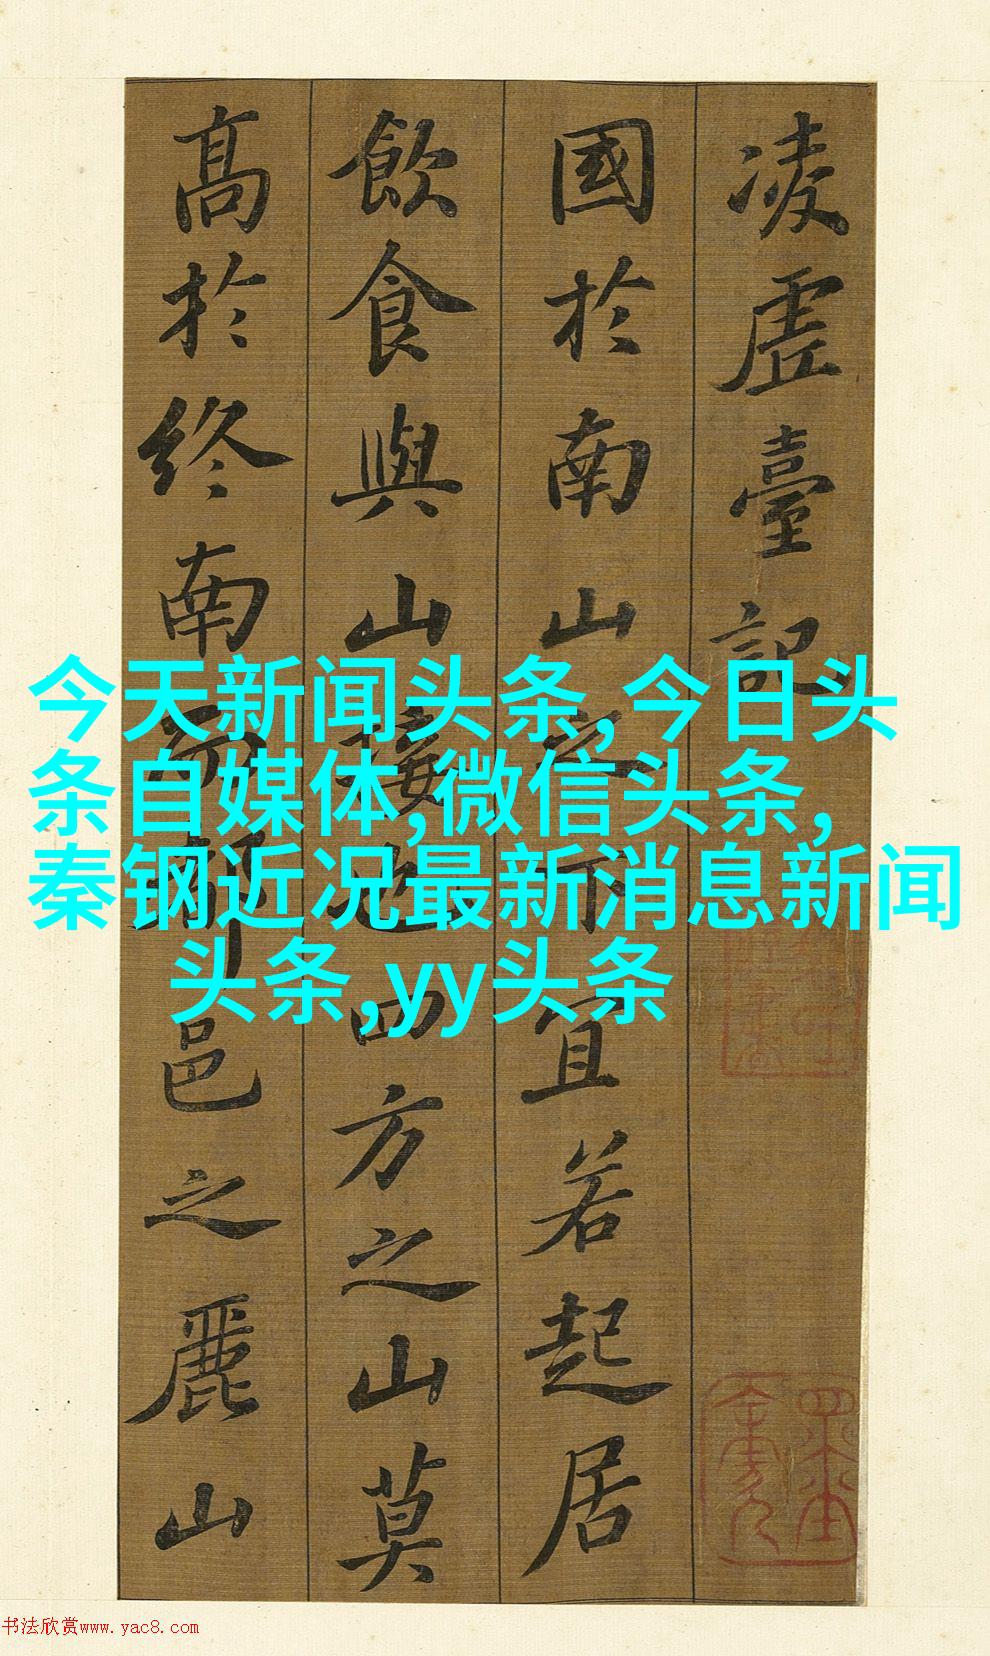 凌虚臺記
國於南山之下宜若起居
飲食與山接也四方之山莫
髙於終南而都邑之麗山
今天新闻头条,今日头
条自媒体,微信头条,
秦钢近况最新消息新闻
头条,yy头条
书法欣赏www.yac8.com